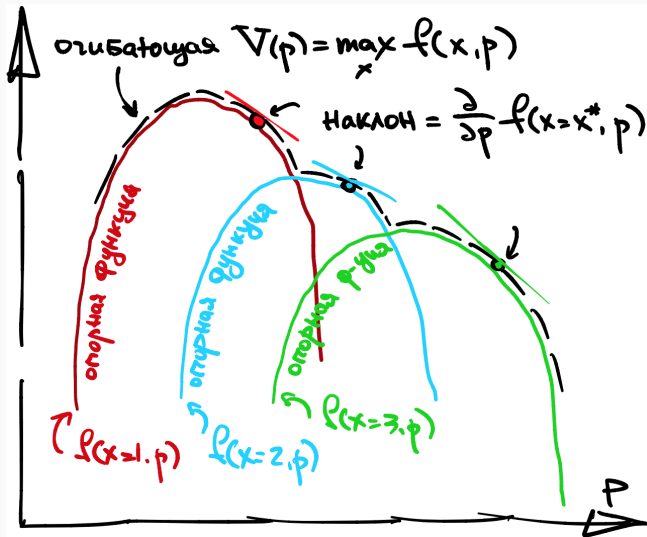 огибающая V(p) = max f(x, p)
x
наклон = ∂/∂p f(x=x*, p)
опорная функция
опорная функция
опорная ф-ция
f(x=1, p)
f(x=2, p)
f(x=3, p)
P